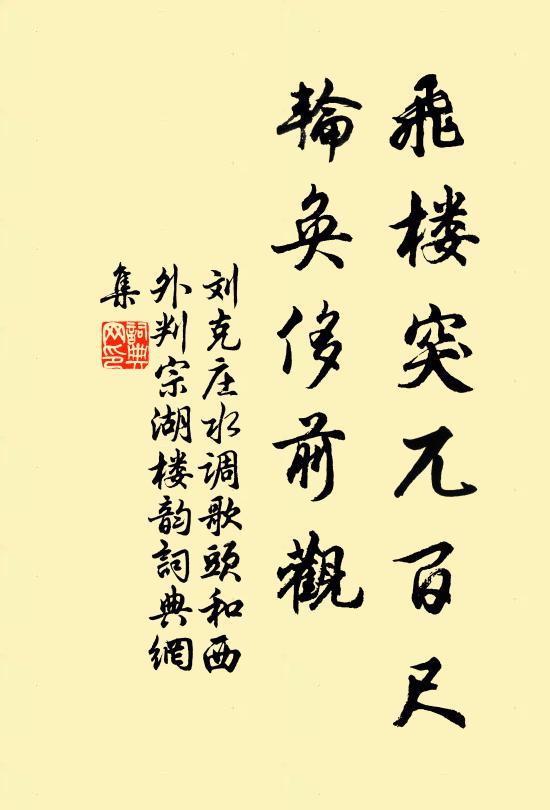 飛楼突兀百尺
輪奐侈前觀
刘克庄水调歌頭和西
外判宗湖楼韵詞典網
集
詞典网印